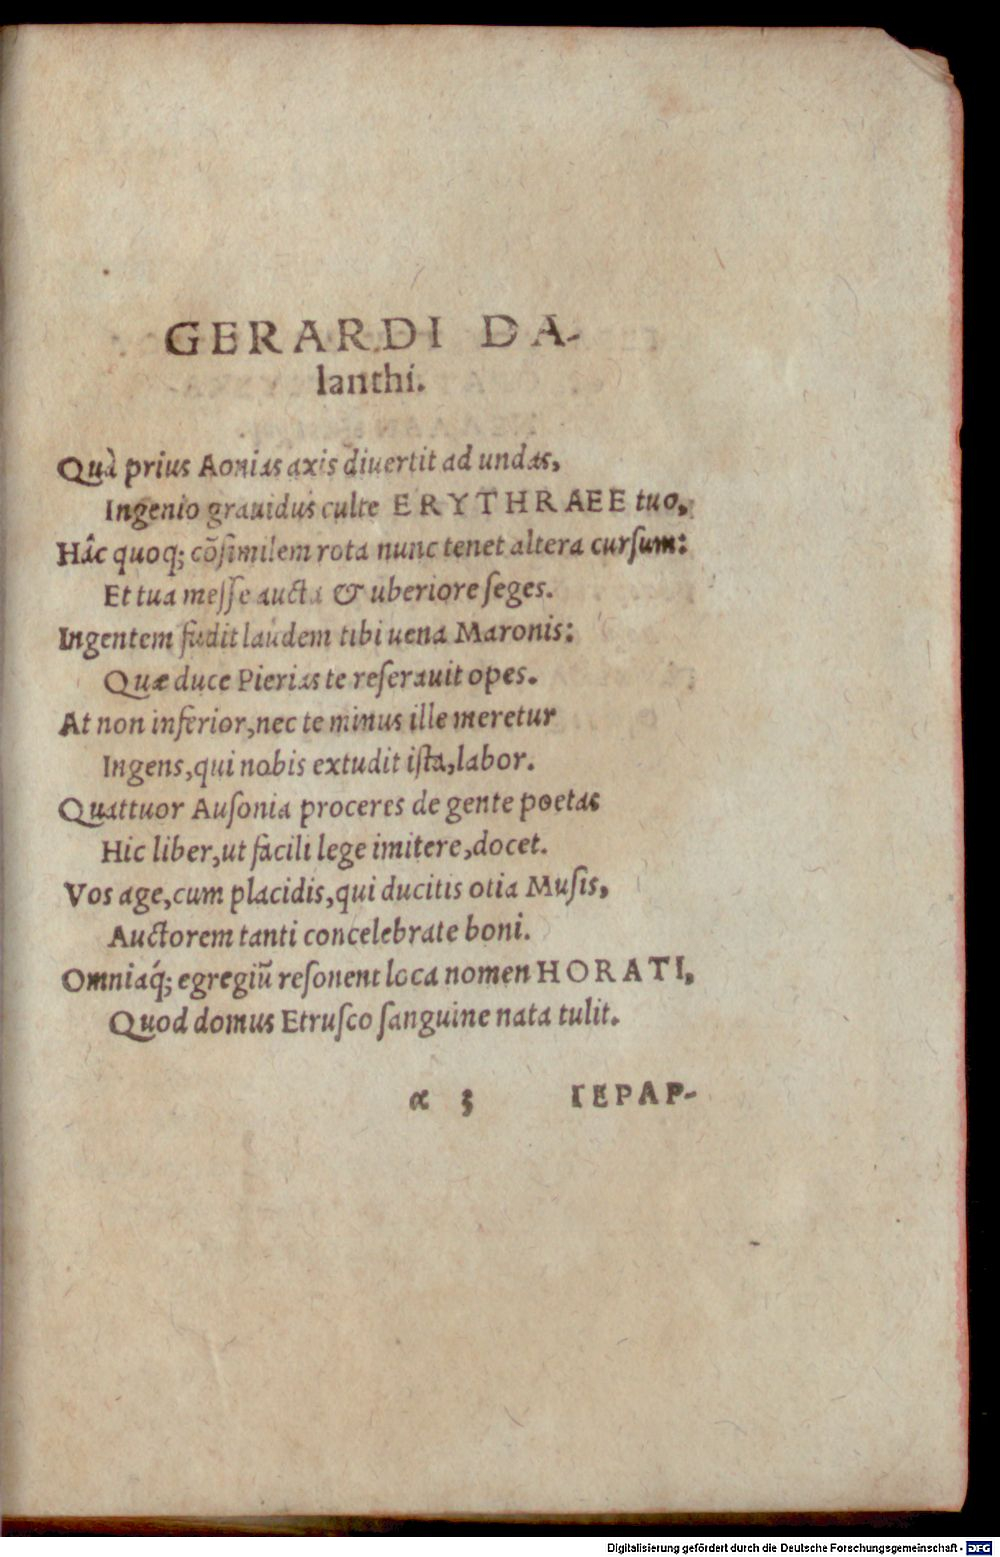 GERARDI DA-
lanthi.
Quà prius Aonias axis diuertit ad undas,
Ingenio grauidus culte ERYTHRAEE tuo,
Hâc quoq; cõsimilem rota nunc tenet altera cursum:
Et tua messe aucta & uberiore seges.
Ingentem fudit laudem tibi uena Maronis:
Quæ duce Pierias te reserauit opes.
At non inferior, nec te minus ille meretur
Ingens, qui nobis extudit ista, labor.
Quattuor Ausonia proceres de gente poetas
Hic liber, ut facili lege imitere, docet.
Vos age, cum placidis, qui ducitis otia Musis,
Auctorem tanti concelebrate boni.
Omniaq́; egregiũ resonent loca nomen HORATI,
Quod domus Etrusco sanguine nata tulit.
α 3 ΓΕΡΑΡ-
Digitalisierung gefördert durch die Deutsche Forschungsgemeinschaft - DFG